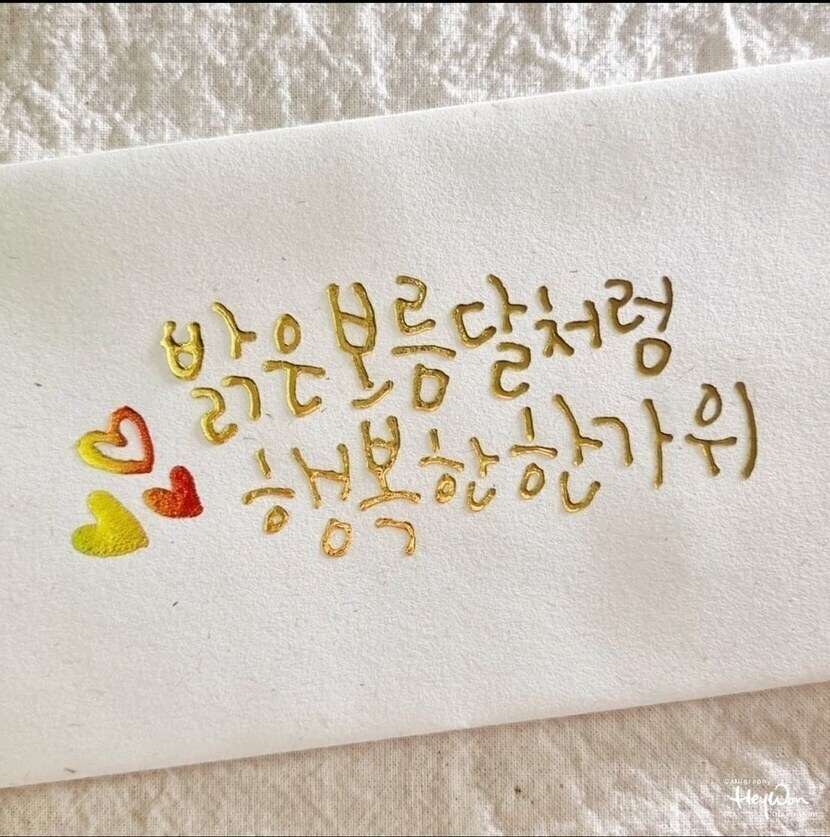 밝은 보름달처럼
행복한 한가위
Calligraphy
HeyWon